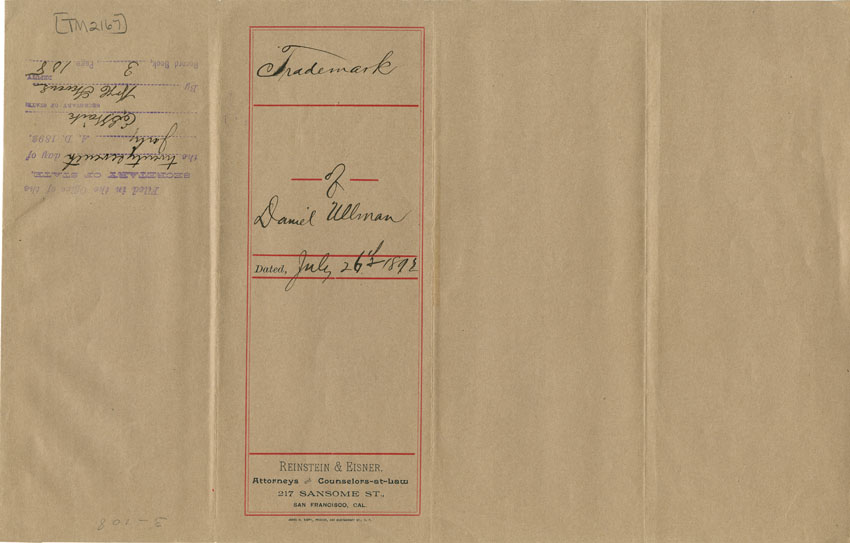 [TM2167]
Filed in the Office of the
SECRETARY OF STATE
the twenty seventh day of
July A. D. 1892.
SECRETARY OF STATE
By
DEPUTY
Record Book, 3 Page 108
Trademark
of
Daniel Ullman
Dated, July 26th 1892
REINSTEIN & EISNER.
Attorneys and Counselors-at-Law
217 SANSOME ST.,
SAN FRANCISCO, CAL.
3-108